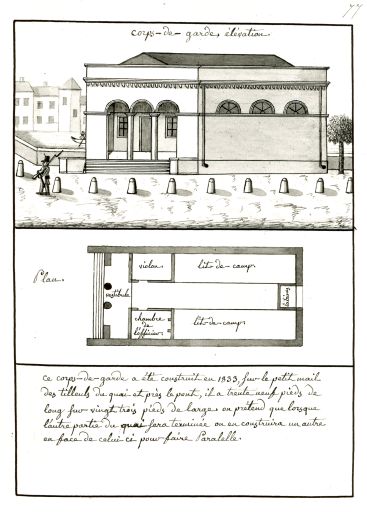 77
corps-de-garde, élévation.
Plan.
violon
lit-de-camp.
vestibule
latrines
chambre
de
l'officier
lit-de-camp.
ce corps-de-garde a été construit en 1833, sur le petit mail
des tilleuls du quai et près le pont, il a trente neuf pieds de
long sur vingt trois pieds de large. on prétend que lorsque
l'autre partie du quai sera terminée on en construira un autre
en face de celui ci pour faire Paralelle.